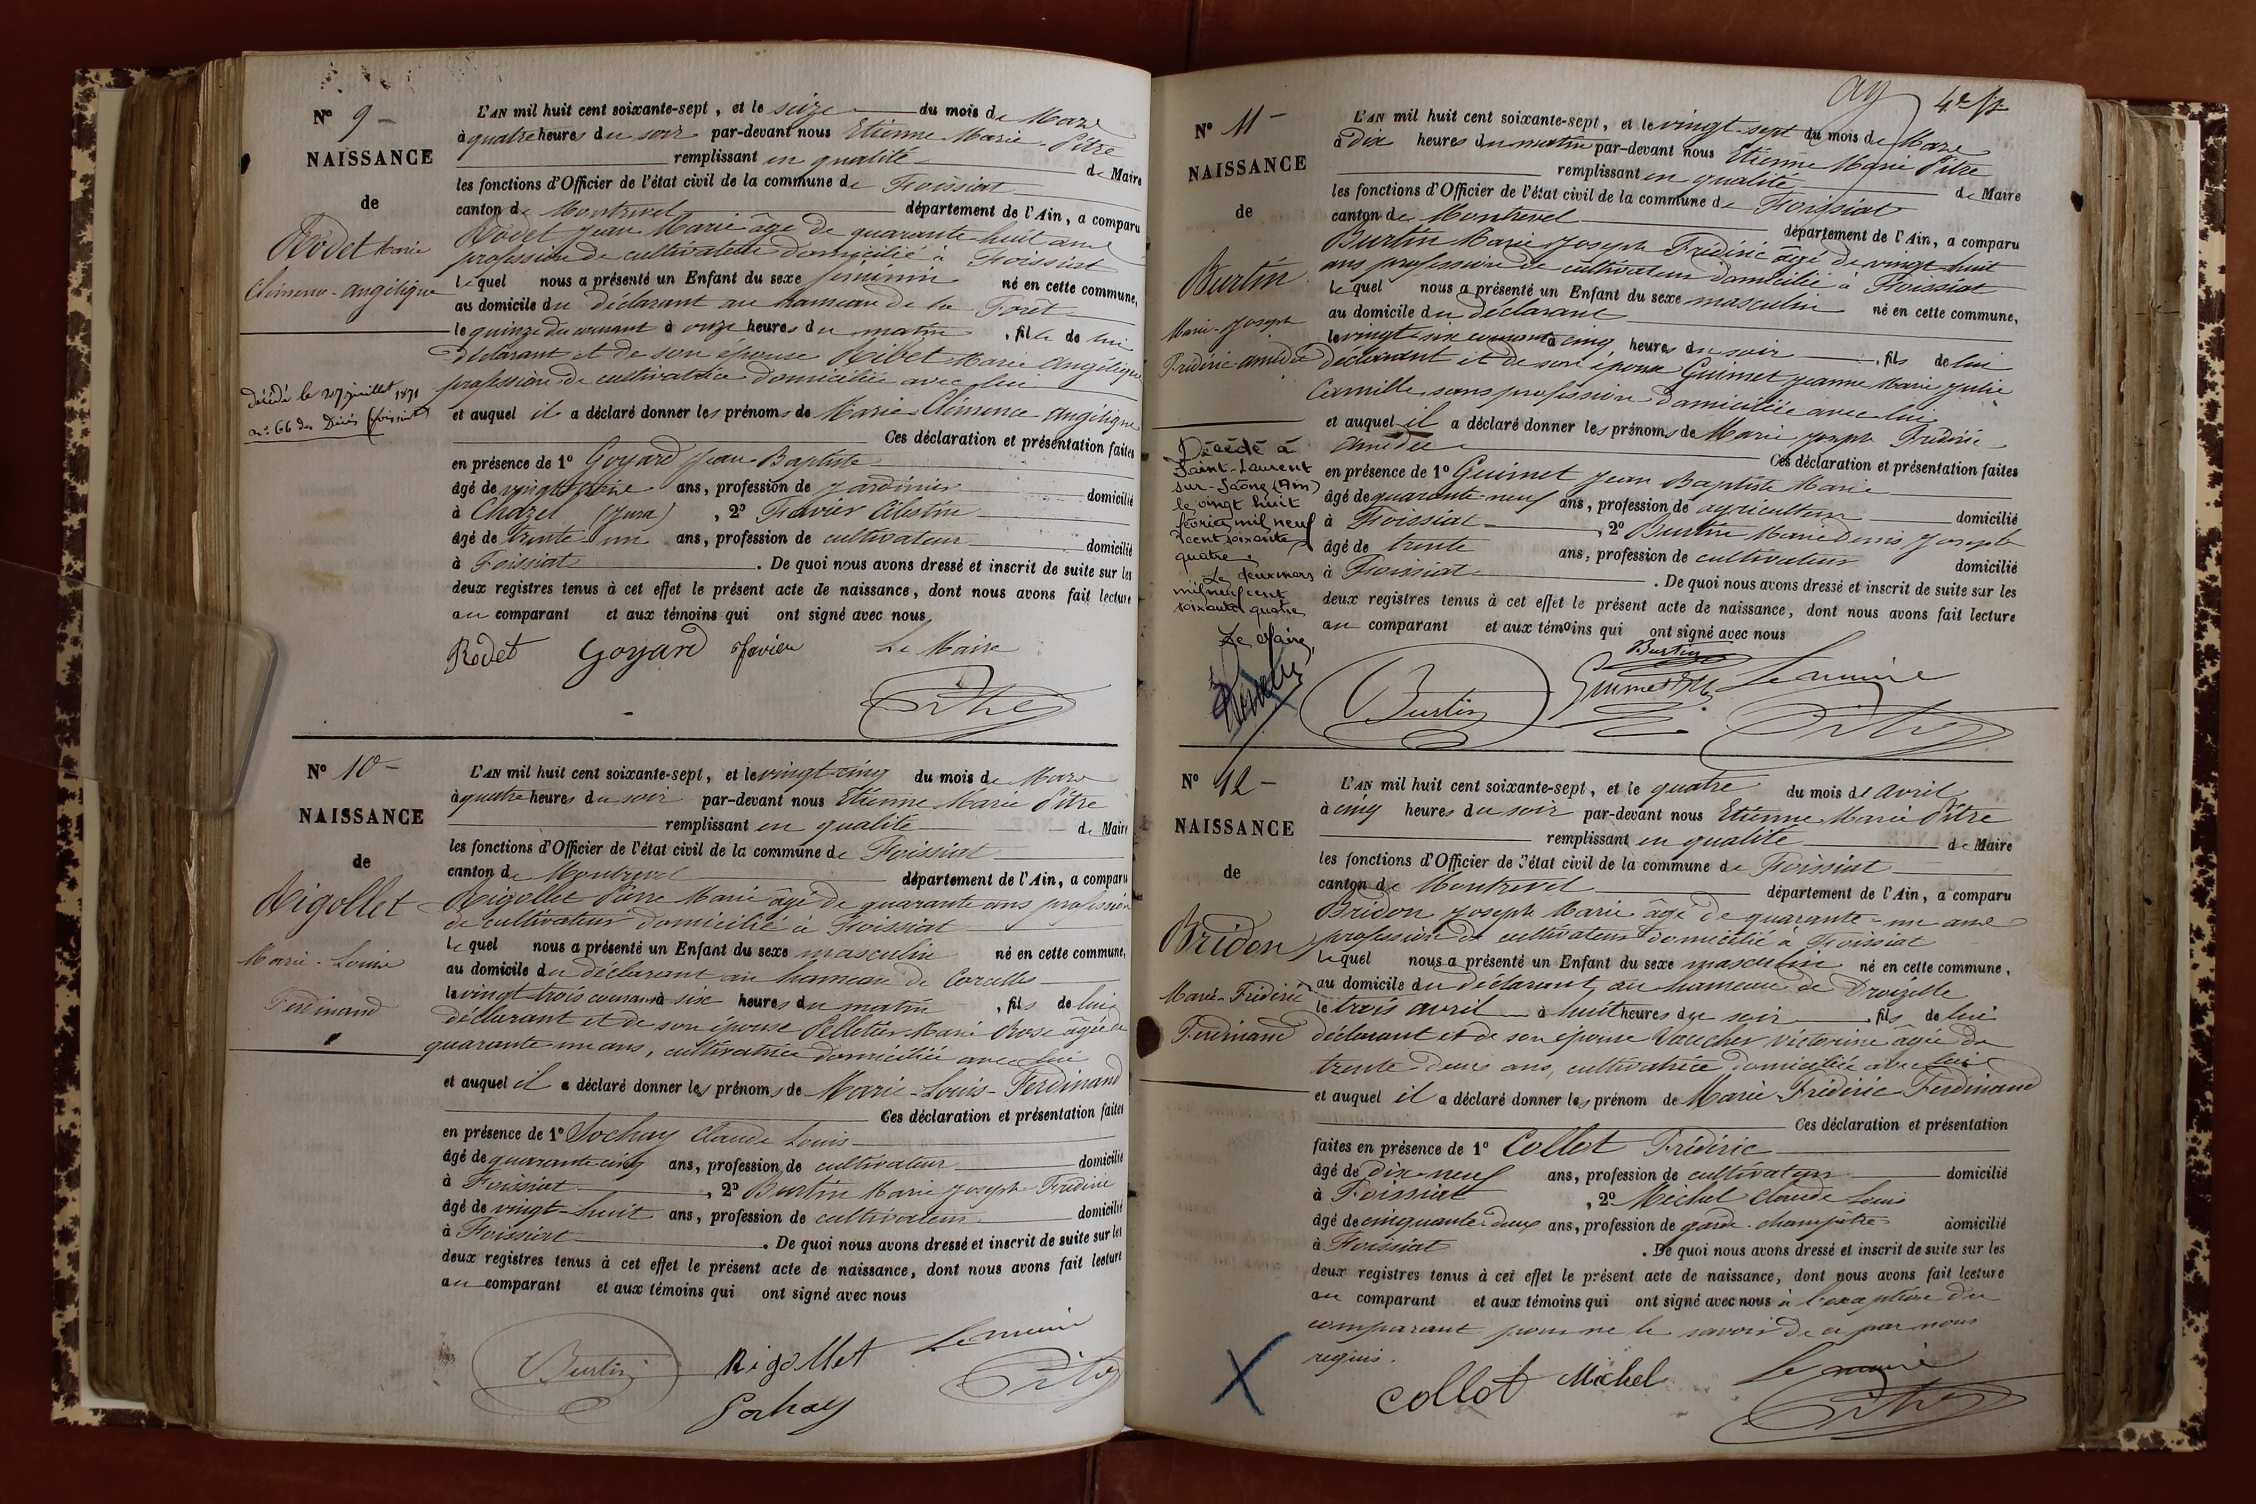 N° 9 -
NAISSANCE
de
Rodet Marie
Clémence-angélique
décédé le 27 juillet 1871
n° 66 des Décès (foissiat)
L'AN mil huit cent soixante-sept, et le seize du mois de Mars
à quatre heures du soir par-devant nous Etienne Marie Pître
remplissant en qualité de Maire
les fonctions d'Officier de l'état civil de la commune de Foissiat
canton de Montrevel département de l'Ain, a comparu
Rodet Jean Marie âgé de quarante huit ans
profession de cultivateur domicilié à Foissiat
lequel nous a présenté un Enfant du sexe féminin né en cette commune,
au domicile du déclarant au hameau de la Foret
le quinze du courant à onze heures du matin, fille de lui
déclarant et de son épouse Ribet Marie Angélique
profession de cultivatrice domiciliée avec lui
et auquel il a déclaré donner les prénoms de Marie Clémence angélique
Ces déclaration et présentation faites
en présence de 1° Goyard Jean Baptiste
âgé de ans, profession de jardinier domicilié
à Chazel (Jura), 2° Favier Célestin
âgé de trente un ans, profession de cultivateur domicilié
à Foissiat. De quoi nous avons dressé et inscrit de suite sur les
deux registres tenus à cet effet le présent acte de naissance, dont nous avons fait lecture
au comparant et aux témoins qui ont signé avec nous
Rodet Goyard favier Le Maire
Pitre
N° 10 -
NAISSANCE
de
Rigollet
Marie-Louis
Ferdinand
L'AN mil huit cent soixante-sept, et le vingt-cinq du mois de Mars
à quatre heures du soir par-devant nous Etienne Marie Pître
remplissant en qualité de Maire
les fonctions d'Officier de l'état civil de la commune de Foissiat
canton de Montrevel département de l'Ain, a comparu
Rigollet Pierre Marie âgé de quarante ans profession
de cultivateur domicilié à Foissiat
lequel nous a présenté un Enfant du sexe masculin né en cette commune,
au domicile du déclarant au hameau de Corcelles
le vingt-trois courant à six heures du matin, fils de lui
déclarant et de son épouse Pelletier Marie Rose âgée de
quarante un ans, cultivatrice domiciliée avec lui
et auquel il a déclaré donner les prénoms de Marie-Louis-Ferdinand
Ces déclaration et présentation faites
en présence de 1° Sochay Claude Louis
âgé de quarante cinq ans, profession de cultivateur domicilié
à Foissiat, 2° Burtin Marie Joseph Frédéric
âgé de vingt-huit ans, profession de cultivateur domicilié
à Foissiat. De quoi nous avons dressé et inscrit de suite sur les
deux registres tenus à cet effet le présent acte de naissance, dont nous avons fait lecture
au comparant et aux témoins qui ont signé avec nous
Burtin Rigollet Le maire
Sochay Pitre
N° 11 -
NAISSANCE
de
Burtin
Marie-Joseph
Frédéric-amédée
Décédé à
Saint-Laurent
sur-Saône (Ain)
le vingt huit
février mil neuf
cent soixante
quatre.
Le deux mars
mil neuf cent
soixante quatre
Le Maire,
L'AN mil huit cent soixante-sept, et le vingt-sept du mois de Mars
à Dix heures du matin par-devant nous Etienne Marie Pître
remplissant en qualité de Maire
les fonctions d'Officier de l'état civil de la commune de Foissiat
canton de Montrevel département de l'Ain, a comparu
Burtin Marie Joseph Frédéric âgé de vingt huit
ans profession de cultivateur domicilié à Foissiat
lequel nous a présenté un Enfant du sexe masculin né en cette commune,
au domicile du déclarant
le vingt-six courant à cinq heures du soir, fils de lui
déclarant et de son épouse Guimet Jeanne Marie Julie
Camille sans profession domiciliée avec lui
et auquel il a déclaré donner les prénoms de Marie Joseph Frédéric
amédée
Ces déclaration et présentation faites
en présence de 1° Guimet Jean Baptiste Marie
âgé de quarante-neuf ans, profession de agriculteur domicilié
à Foissiat, 2° Burtin Marie Denis Joseph
âgé de trente ans, profession de cultivateur domicilié
à Foissiat. De quoi nous avons dressé et inscrit de suite sur les
deux registres tenus à cet effet le présent acte de naissance, dont nous avons fait lecture
au comparant et aux témoins qui ont signé avec nous
Burtin
Burtin Guimet Le maire
Pitre
N° 12 -
NAISSANCE
de
Bridon
Marie-Frédéric
Ferdinand
L'AN mil huit cent soixante-sept, et le quatre du mois de avril
à cinq heures du soir par-devant nous Etienne Marie Pître
remplissant en qualité de Maire
les fonctions d'Officier de l'état civil de la commune de Foissiat
canton de Montrevel département de l'Ain, a comparu
Bridon Joseph Marie âgé de quarante-un ans
profession de cultivateur domicilié à Foissiat
lequel nous a présenté un Enfant du sexe masculin né en cette commune,
au domicile du déclarant, au hameau de Droizelle
le trois avril à huit heures du soir, fils de lui
déclarant et de son épouse Vaucher Victorine âgée de
trente deux ans, cultivatrice domiciliée avec lui
et auquel il a déclaré donner les prénom de Marie Frédéric Ferdinand
Ces déclaration et présentation
faites en présence de 1° Collot Frédéric
âgé de dix-neuf ans, profession de cultivateur domicilié
à Foissiat, 2° Michel Claude Louis
âgé de cinquante-deux ans, profession de garde-champêtre domicilié
à Foissiat. De quoi nous avons dressé et inscrit de suite sur les
deux registres tenus à cet effet le présent acte de naissance, dont nous avons fait lecture
au comparant et aux témoins qui ont signé avec nous à l'exception du
comparant pour ne le savoir de ce par nous
requis.
collot Michel Le maire
Pitre